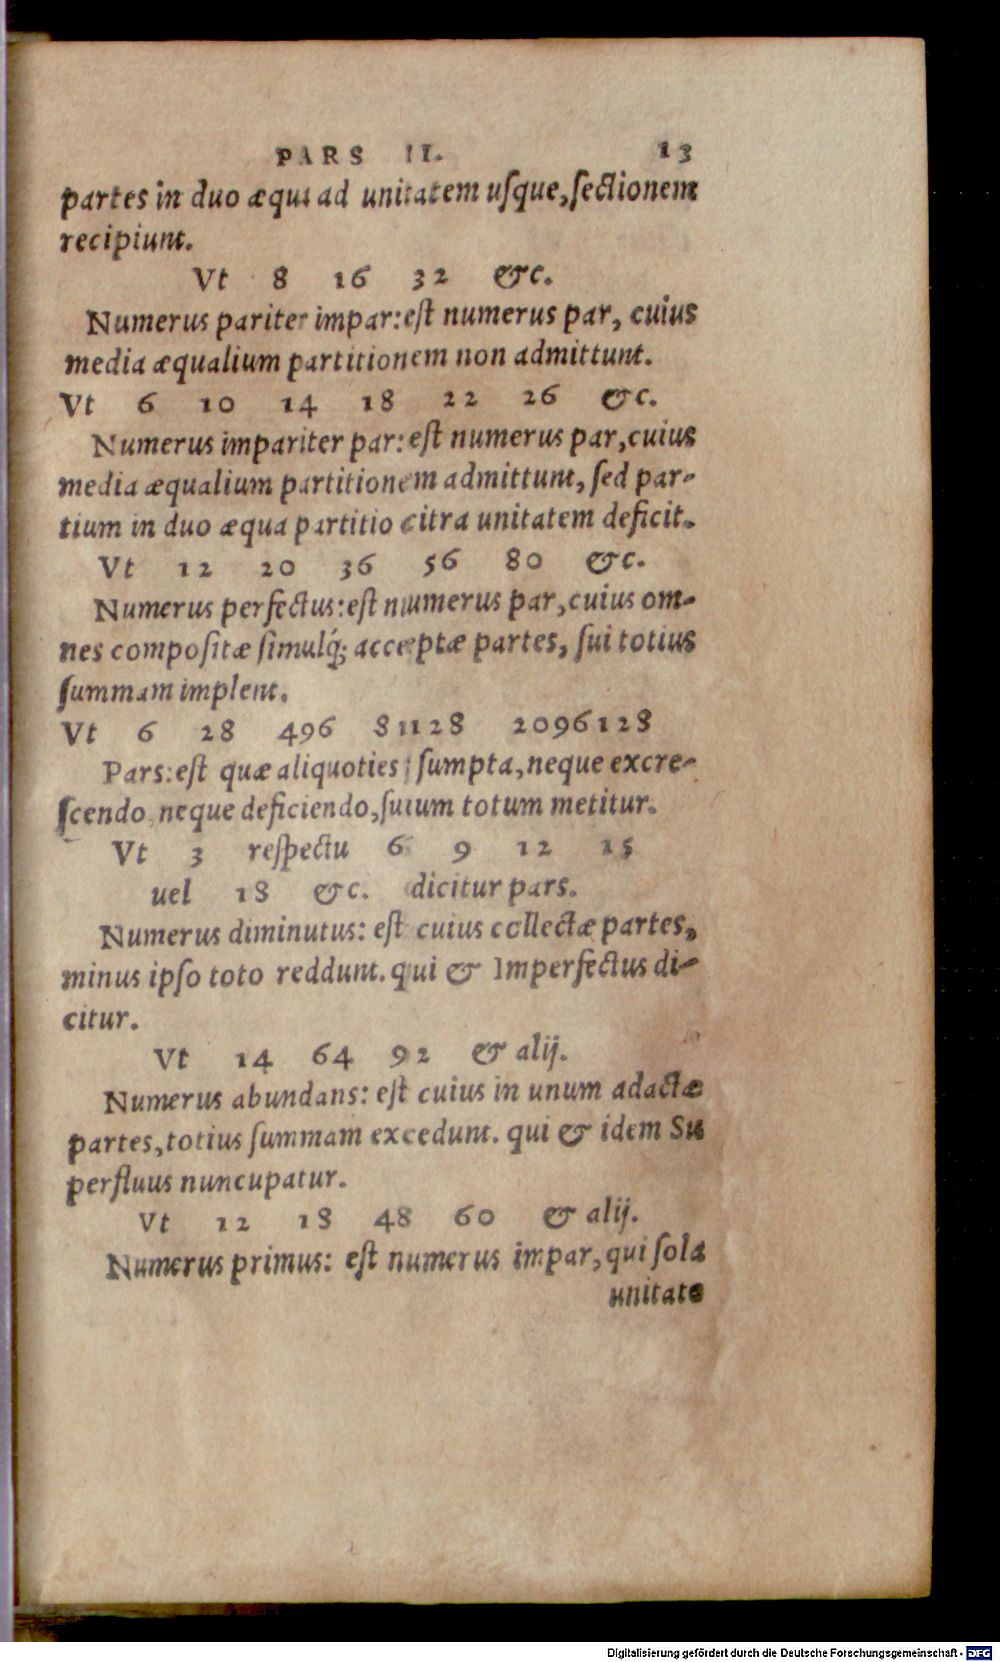 PARS II. 13
partes in duo æqua ad unitatem usque, sectionem
recipiunt.
Vt 8 16 32 &c.
Numerus pariter impar: est numerus par, cuius
media æqualium partitionem non admittunt.
Vt 6 10 14 18 22 26 &c.
Numerus impariter par: est numerus par, cuius
media æqualium partitionem admittunt, sed par-
tium in duo æqua partitio citra unitatem deficit.
Vt 12 20 36 56 80 &c.
Numerus perfectus: est numerus par, cuius om-
nes compositæ simulq́; acceptæ partes, sui totius
summam implent.
Vt 6 28 496 81128 2096128
Pars: est quæ aliquoties sumpta, neque excre-
scendo neque deficiendo, suum totum metitur.
Vt 3 respectu 6 9 12 15
uel 18 &c. dicitur pars.
Numerus diminutus: est cuius collectæ partes,
minus ipso toto reddunt. qui & Imperfectus di-
citur.
Vt 14 64 92 & alij.
Numerus abundans: est cuius in unum adactæ
partes, totius summam excedunt. qui & idem Su
perfluus nuncupatur.
Vt 12 18 48 60 & alij.
Numerus primus: est numerus impar, qui sola
unitate
Digitalisierung gefördert durch die Deutsche Forschungsgemeinschaft - DFG